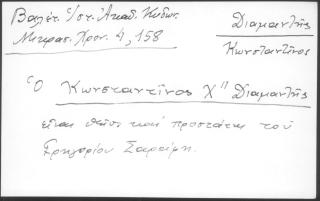 Βαλέτ. Ἱστ. Ἀκαδ. Κυδων.
Μικρασ. Χρον. 4, 158
Διαμαντῆς
Κωνσταντῖνος
Ὁ Κωνσταντῖνος Χ" Διαμαντῆς
εἶναι θεῖος καὶ προστάτης τοῦ
Γρηγορίου Σαράφη.